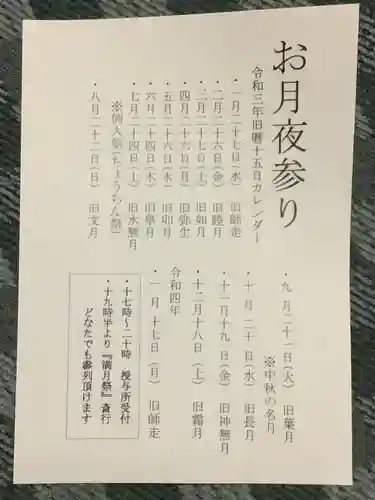 お月夜参り
令和三年旧暦十五日カレンダー
・一月二十七日(水) 旧師走
・二月二十六日(金) 旧睦月
・三月二十七日(土) 旧如月
・四月二十六日(月) 旧弥生
・五月二十六日(水) 旧卯月
・六月二十四日(木) 旧皐月
・七月二十四日(土) 旧水無月
※例大祭(ちょうちん祭)
・八月二十二日(日) 旧文月
・九月二十一日(火) 旧葉月
※中秋の名月
・十月二十日(水) 旧長月
・十一月十九日(金) 旧神無月
・十二月十八日(土) 旧霜月
令和四年
・一月十七日(月) 旧師走
・十七時~二十時 授与所受付
・十九時半より『満月祭』斎行
どなたでも参列頂けます